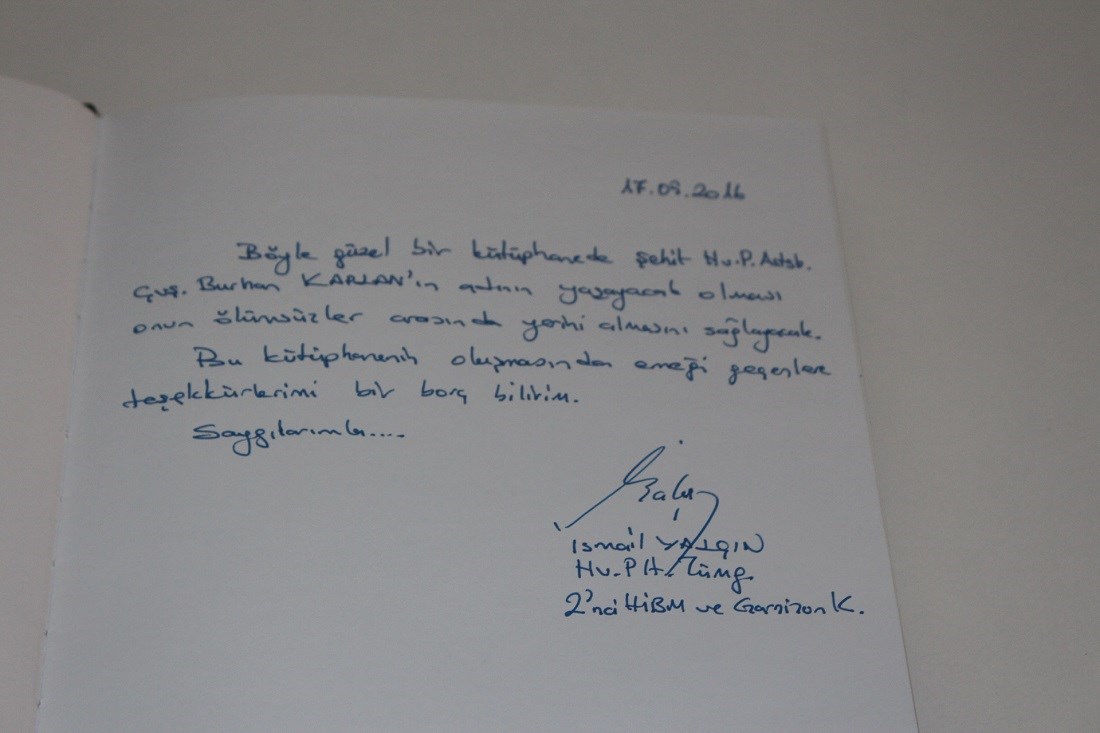 17.09.2016
Böyle güzel bir kütüphanede şehit Hv.P.Astsb.
Çvş. Burhan KAPLAN'ın adının yaşayacak olması
onun ölümsüzler arasında yerini almasını sağlayacak.
Bu kütüphanenin oluşmasında emeği geçenlere
teşekkürlerimi bir borç bilirim.
Saygılarımla....
İsmail YALÇIN
Hv.Plt.Tümg.
2'nci HİBM ve Garnizon K.